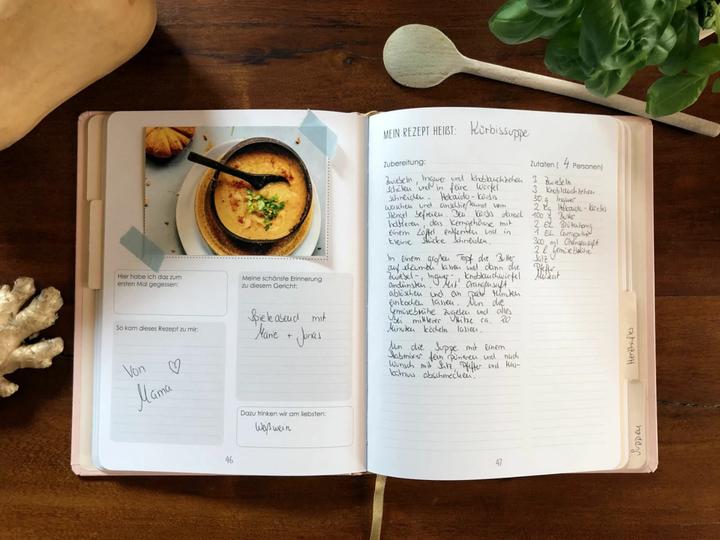 Hier habe ich das zum
ersten Mal gegessen:
So kam dieses Rezept zu mir:
Von ♡
Mama
Meine schönste Erinnerung
zu diesem Gericht:
Spieleabend mit
Marie + Jonas
Dazu trinken wir am liebsten:
Weißwein
46
MEIN REZEPT HEIẞT: Kürbissuppe
Zubereitung:
Zwiebeln, Ingwer und Knoblauchzehen
schälen und in feine Würfel
schneiden. Hokkaido-Kürbis
waschen und anschließend vom
Stengel befreien. Den Kürbis danach
halbieren, das Kerngehäuse mit
einem Löffel entfernen und in
kleine Stücke schneiden.
In einem großen Topf die Butter
zerlaufen lassen und dann die
Zwiebel-, Ingwer-, Knoblauchwürfel
andünsten. Mit Orangensaft
ablöschen und ein paar Minuten
einkochen lassen. Nun die
Gemüsebrühe zugeben und alles
bei mittlerer Hitze ca. 20
Minuten köcheln lassen.
Nun die Suppe mit einem
Stabmixer fein pürieren und nach
Wunsch mit Salz, Pfeffer und
abschmecken.
Zutaten ( 4 Personen)
3 Zwiebeln
3 Knoblauchzehen
30 g Ingwer
2 kg Hokkaido-Kürbis
100 g Butter
2 EL
1 EL
300 ml Orangensaft
2 l Gemüsebrühe
Salz
Pfeffer
Muskat
47
Herzhaftes
Suppen